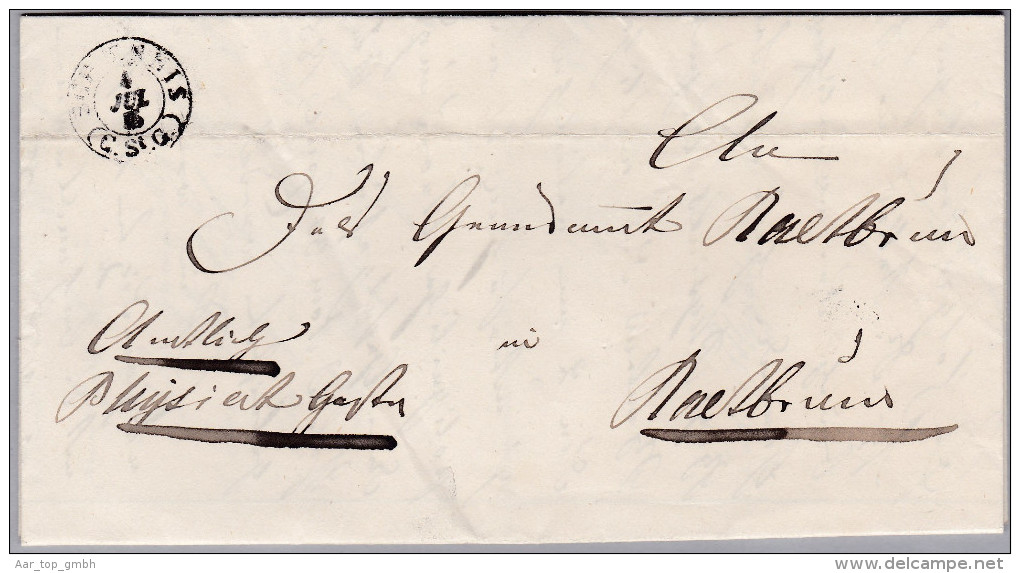 4
JUL
(C. St. G.)
Das Gemeindamt Kaltbrun
Amtlich
in
Physicat Gaster
Kaltbrun
Aar_top_gmbh
www.delcampe.net